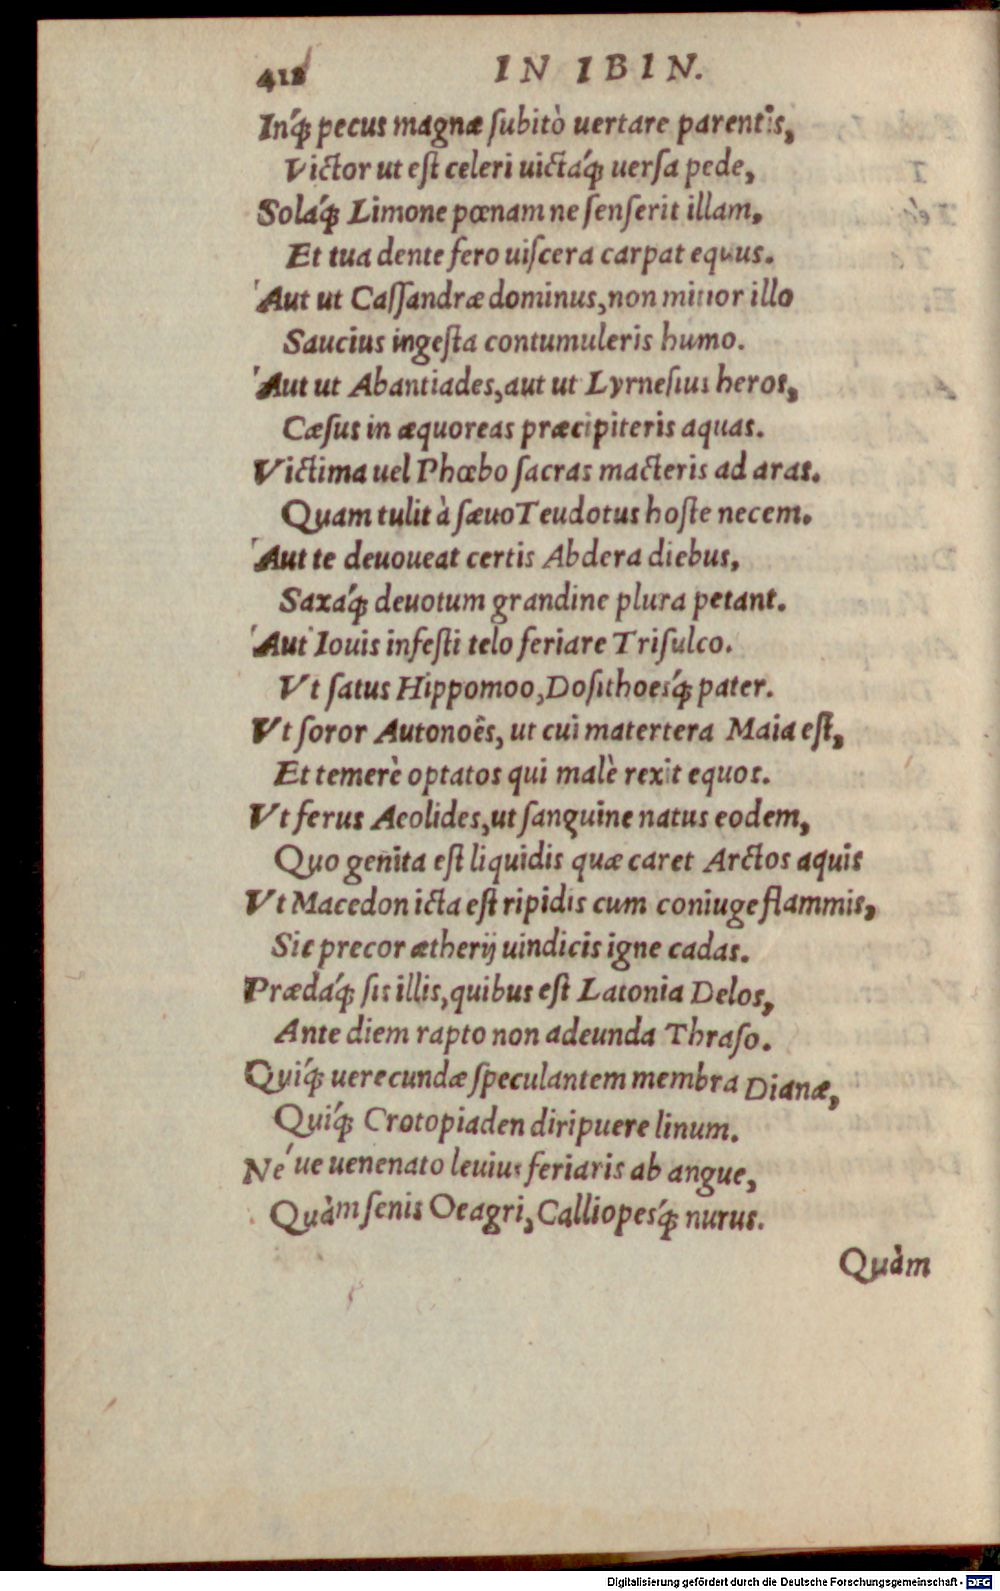 412 IN IBIN.
Inq́; pecus magnæ ſubitò uertare parentis,
Victor ut eſt celeri uictáq; uerſa pede,
Soláq; Limone pœnam ne ſenſerit illam,
Et tua dente fero uiſcera carpat equus.
Aut ut Caſſandræ dominus, non mitior illo
Saucius ingeſta contumuleris humo.
Aut ut Abantiades, aut ut Lyrneſius heros,
Cæſus in æquoreas præcipiteris aquas.
Victima uel Phœbo ſacras macteris ad aras.
Quam tulit à ſæuo Teudotus hoſte necem.
Aut te deuoueat certis Abdera diebus,
Saxáq; deuotum grandine plura petant.
Aut Iouis infeſti telo feriare Triſulco.
Vt ſatus Hippomoo, Doſithoesq́; pater.
Vt ſoror Autonoês, ut cui matertera Maia eſt,
Et temerè optatos qui malè rexit equos.
Vt ferus Aeolides, ut ſanguine natus eodem,
Quo genita eſt liquidis quæ caret Arctos aquis
Vt Macedon icta eſt ripidis cum coniuge flammis,
Sic precor ætherij uindicis igne cadas.
Prædáq; ſis illis, quibus eſt Latonia Delos,
Ante diem rapto non adeunda Thraſo.
Quiq́; uerecundæ ſpeculantem membra Dianæ,
Quiq́; Crotopiaden diripuere linum.
Né ue uenenato leuius feriaris ab angue,
Quàm ſenis Oeagri, Calliopesq́; nurus.
Quàm
Digitalisierung gefördert durch die Deutsche Forschungsgemeinschaft - DFG